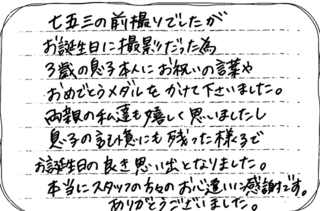 七五三の前撮りでしたが
お誕生日に撮影だった為
3歳の息子本人にお祝いの言葉や
おめでとうメダルをかけて下さいました。
両親の私達も嬉しく思いましたし
息子の記憶にも残った様子で
お誕生日の良き思い出となりました。
本当にスタッフの方々のお心遣いに感謝です。
ありがとうございました。